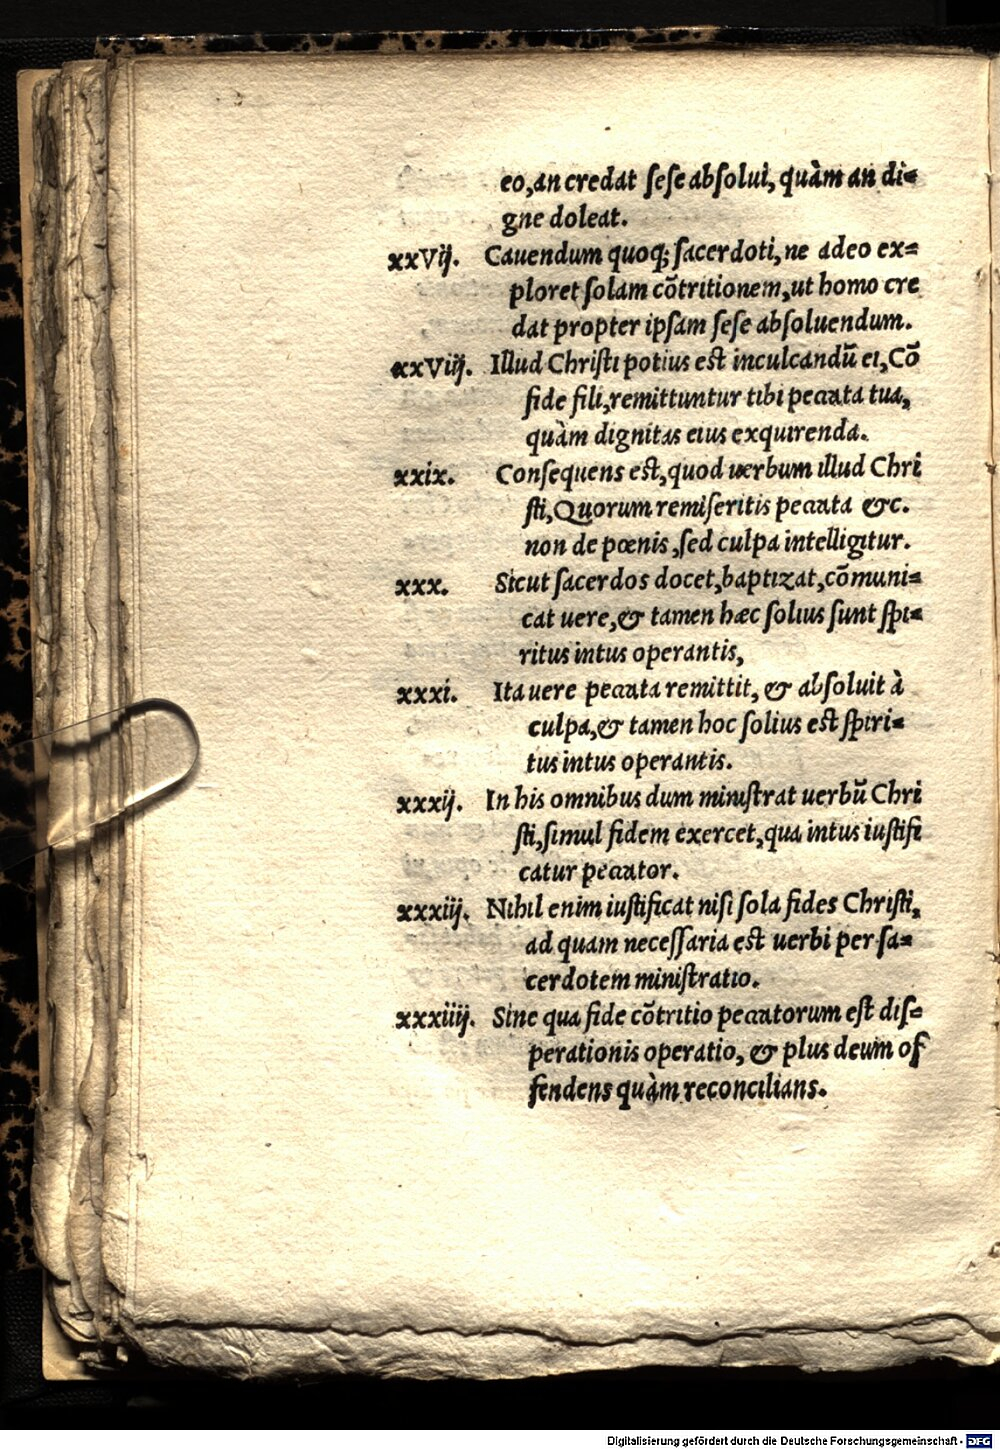 eo, an credat ſeſe abſolui, quàm an di⸗
gne doleat.
xxVij. Cauendum quoq; ſacerdoti, ne adeo ex⸗
ploret ſolam cõtritionem, ut homo cre
dat propter ipſam ſeſe abſoluendum.
xxViij. Illud Chriſti potius eſt inculcandũ ei, Cõ
fide fili, remittuntur tibi peccata tua,
quàm dignitas eius exquirenda.
xxix. Conſequens eſt, quod uerbum illud Chri
ſti, Quorum remiſeritis peccata &c.
non de pœnis, ſed culpa intelligitur.
xxx. Sicut ſacerdos docet, baptizat, cõmuni⸗
cat uere, & tamen hæc ſolius ſunt ſpi⸗
ritus intus operantis,
xxxi. Ita uere peccata remittit, & abſoluit à
culpa, & tamen hoc ſolius eſt ſpiri⸗
tus intus operantis.
xxxij. In his omnibus dum miniſtrat uerbũ Chri
ſti, ſimul fidem exercet, qua intus iuſtifi
catur peccator.
xxxiij. Nihil enim iuſtificat niſi ſola fides Chriſti,
ad quam neceſſaria eſt uerbi per ſa⸗
cerdotem miniſtratio.
xxxiiij. Sine qua fide cõtritio peccatorum eſt diſ⸗
perationis operatio, & plus deum of
fendens quàm reconcilians.
Digitalisierung gefördert durch die Deutsche Forschungsgemeinschaft - DFG